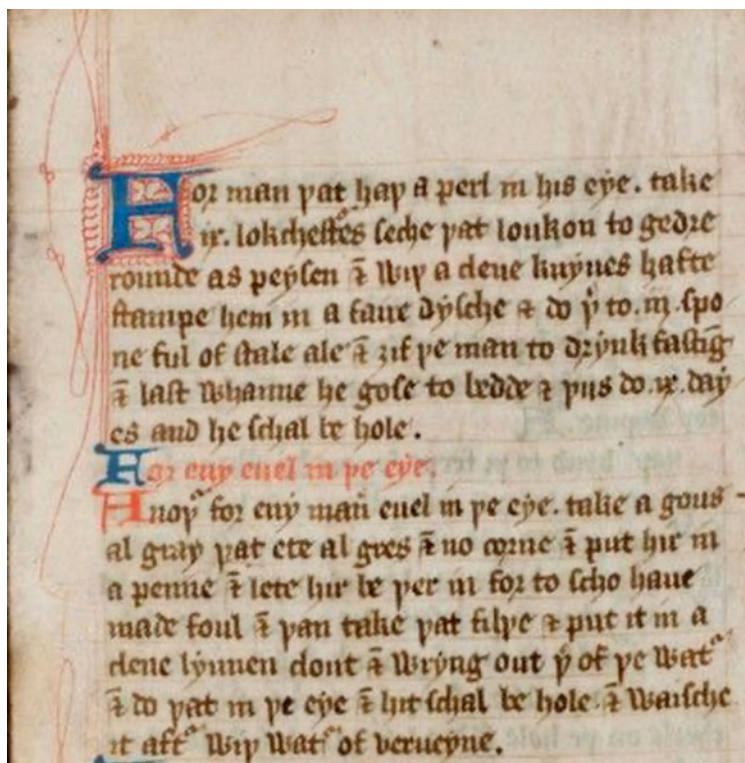 For man þat haþ a perl in his eye. take
ix. lokchestes seche þat loukon to gedre
rounde as peysen & wiþ a clene knyues hafte
stampe hem in a faire dysche & do þto. iij. spo
ne ful of stale ale & ȝif þe man to drynk fastīg
& last whanne he gose to bedde & þus do. ix. day
es and he schal be hole.
For eny euel in þe eye.
Anoþ for eny man euel in þe eye. take a gous
al gray þat ete al gres & no corne & put hir in
a penne & lete hir be þer in for to scho haue
made foul & þan take þat filþe & put it in a
clene lynnen clout & wryng out þ of þe wat
& do þat in þe eye & hit schal be hole. & waische
it aft wiþ wat of verueyne.